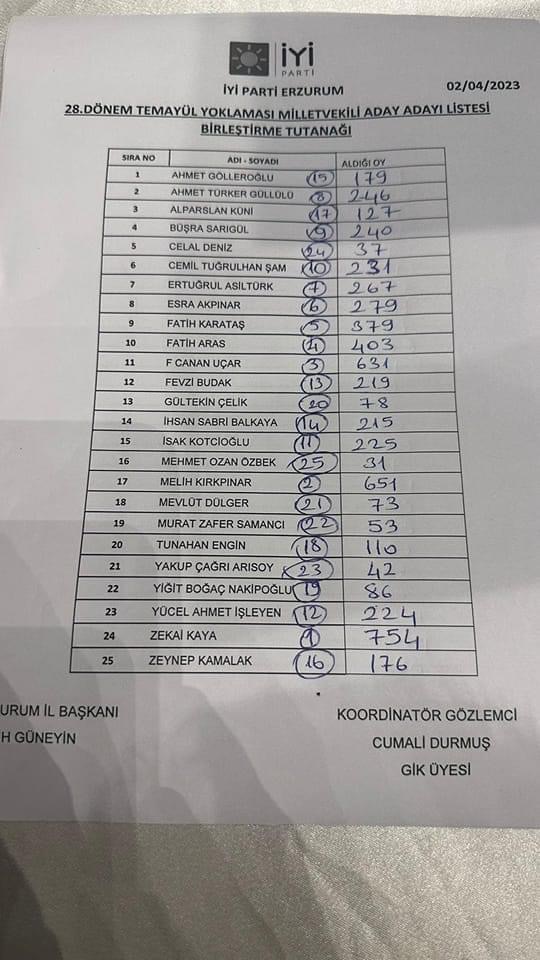 İYİ
PARTİ
İYİ PARTİ ERZURUM 02/04/2023
28.DÖNEM TEMAYÜL YOKLAMASI MİLLETVEKİLİ ADAY ADAYI LİSTESİ
BİRLEŞTİRME TUTANAĞI
SIRA NO ADI - SOYADI ALDIĞI OY
1 AHMET GÖLLEROĞLU 15 179
2 AHMET TÜRKER GÜLLÜLÜ 8 246
3 ALPARSLAN KÜNİ 17 127
4 BÜŞRA SARIGÜL 9 240
5 CELAL DENİZ 24 37
6 CEMİL TUĞRULHAN ŞAM 10 231
7 ERTUĞRUL ASİLTÜRK 7 267
8 ESRA AKPINAR 6 279
9 FATİH KARATAŞ 5 379
10 FATİH ARAS 4 403
11 F CANAN UÇAR 3 631
12 FEVZİ BUDAK 13 219
13 GÜLTEKİN ÇELİK 20 78
14 İHSAN SABRİ BALKAYA 14 215
15 İSAK KOTCİOĞLU 11 225
16 MEHMET OZAN ÖZBEK 25 31
17 MELİH KIRKPINAR 2 651
18 MEVLÜT DÜLGER 21 73
19 MURAT ZAFER SAMANCI 22 53
20 TUNAHAN ENGİN 18 110
21 YAKUP ÇAĞRI ARISOY 23 42
22 YİĞİT BOĞAÇ NAKİPOĞLU 19 86
23 YÜCEL AHMET İŞLEYEN 12 224
24 ZEKAİ KAYA 1 754
25 ZEYNEP KAMALAK 16 176
URUM İL BAŞKANI KOORDİNATÖR GÖZLEMCİ
H GÜNEYİN CUMALİ DURMUŞ
GİK ÜYESİ